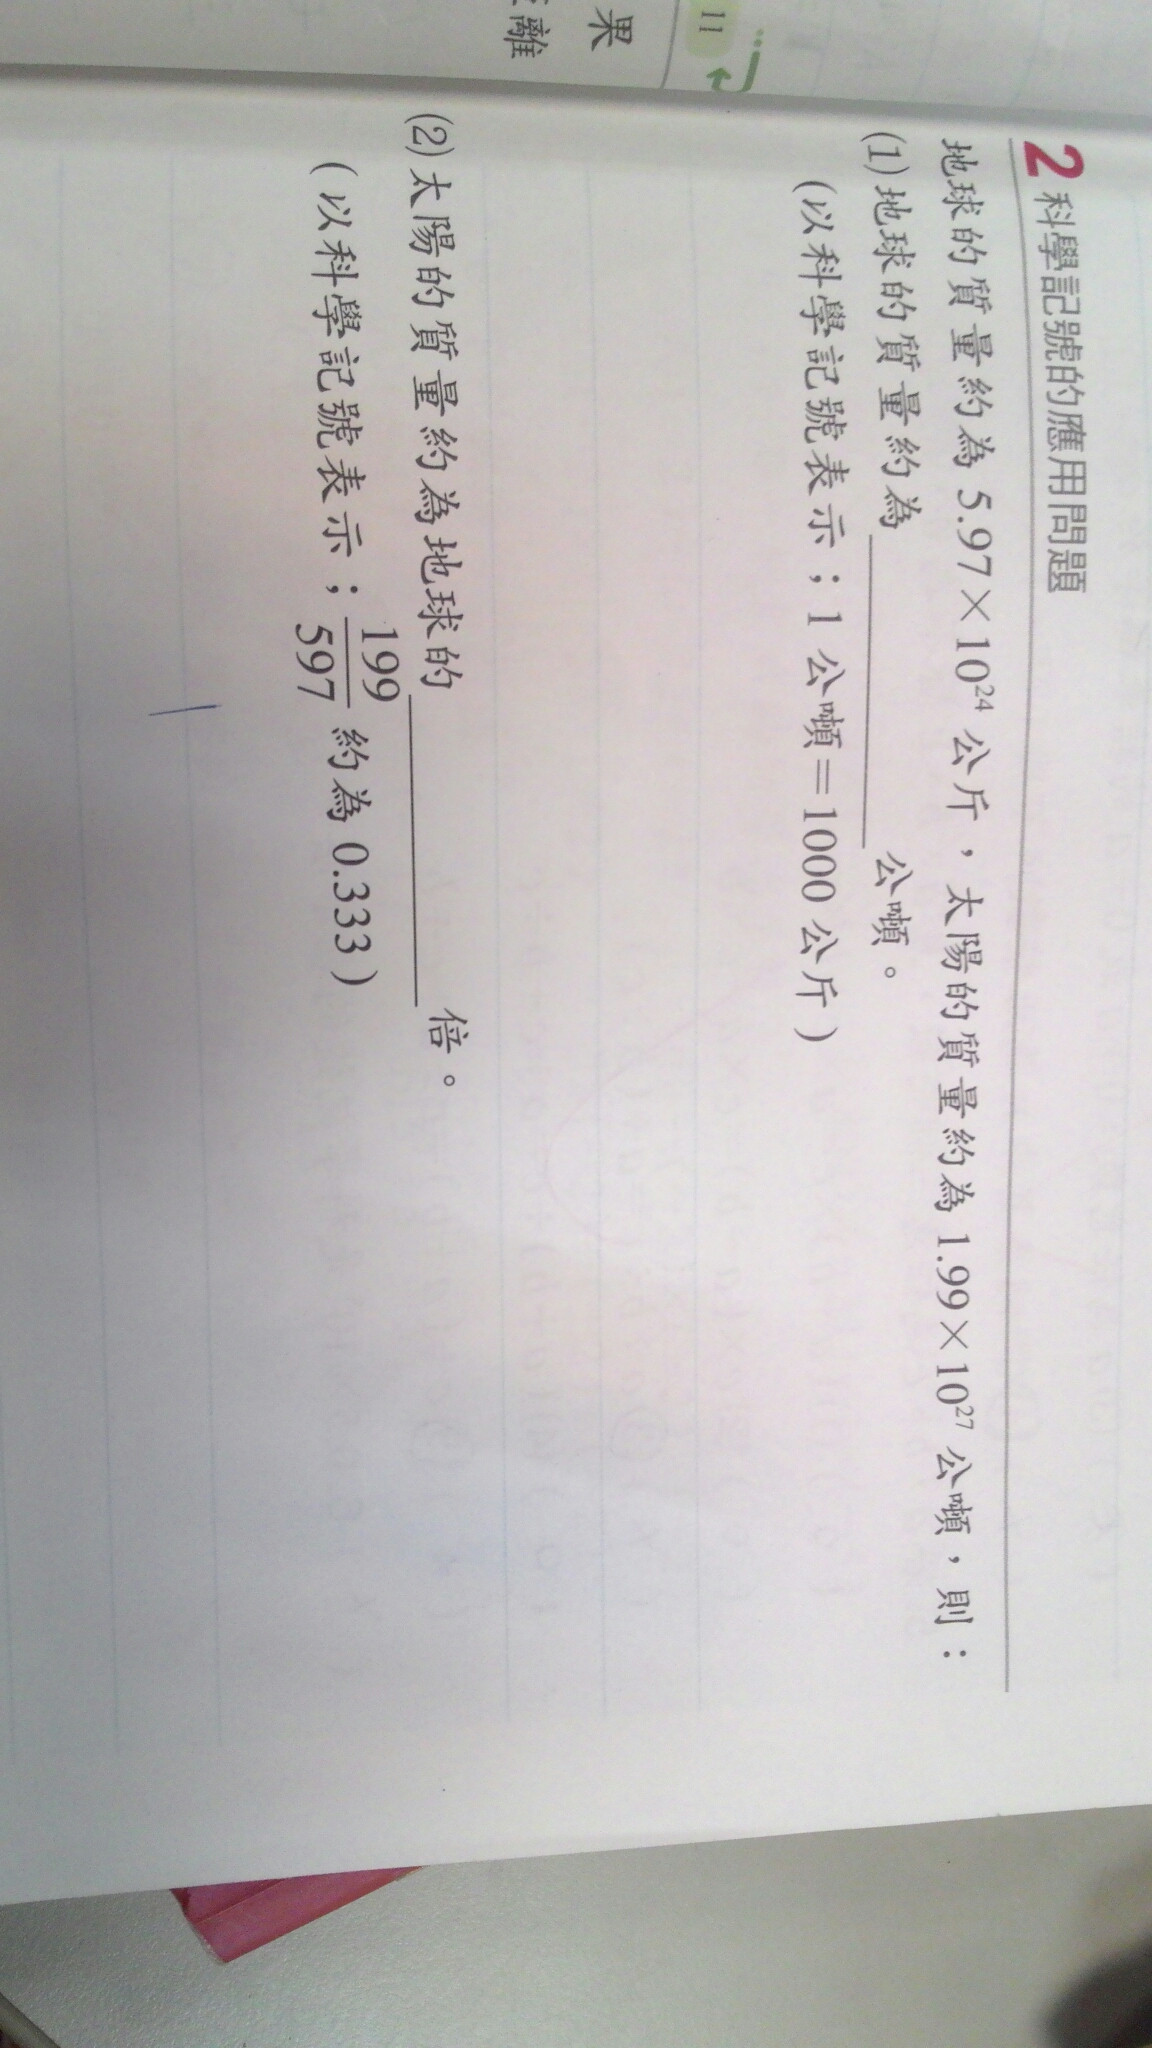 11
果
離
2 科學記號的應用問題
地球的質量約為 5.97×10²⁴ 公斤，太陽的質量約為 1.99×10²⁷ 公噸，則：
(1) 地球的質量約為＿＿＿＿公噸。
（以科學記號表示；1 公噸＝1000 公斤）
(2) 太陽的質量約為地球的＿＿＿＿倍。
（以科學記號表示；199/597 約為 0.333）